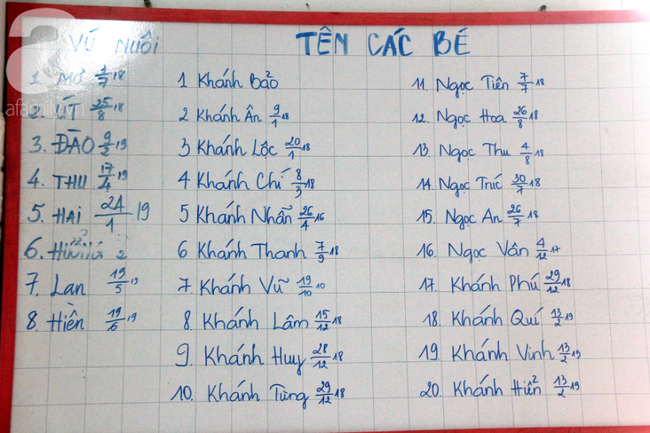 VÚ NUÔI
1. MƠ 18
2. ÚT 25/8 18
3. ĐÀO 9/2 19
4. THU 17/4 19
5. HAI 24/1 19
6.
7. Lan 19/5 19
8 Hiền 19/6 19
TÊN CÁC BÉ
1 Khánh Bảo
2 Khánh Ân 9/1 18
3 Khánh Lộc 20/1 18
4 Khánh Chí 8/3 18
5 Khánh Nhân 26/4 16
6 Khánh Thanh 7/9 18
7. Khánh Vũ 19/10 10
8. Khánh Lâm 15/12 18
9. Khánh Huy 28/12 18
10. Khánh Tùng 29/12 18
11. Ngọc Tiên 7/7 18
12. Ngọc Hoa 26/8 18
13. Ngọc Thu 4/8 18
14. Ngọc Trúc 30/7 18
15. Ngọc An 26/7 18
16. Ngọc Vân 4/12 17
17. Khánh Phú 29/12 18
18. Khánh Quí 13/2 19
19. Khánh Vinh 13/2 19
20. Khánh Hiển 13/2 19